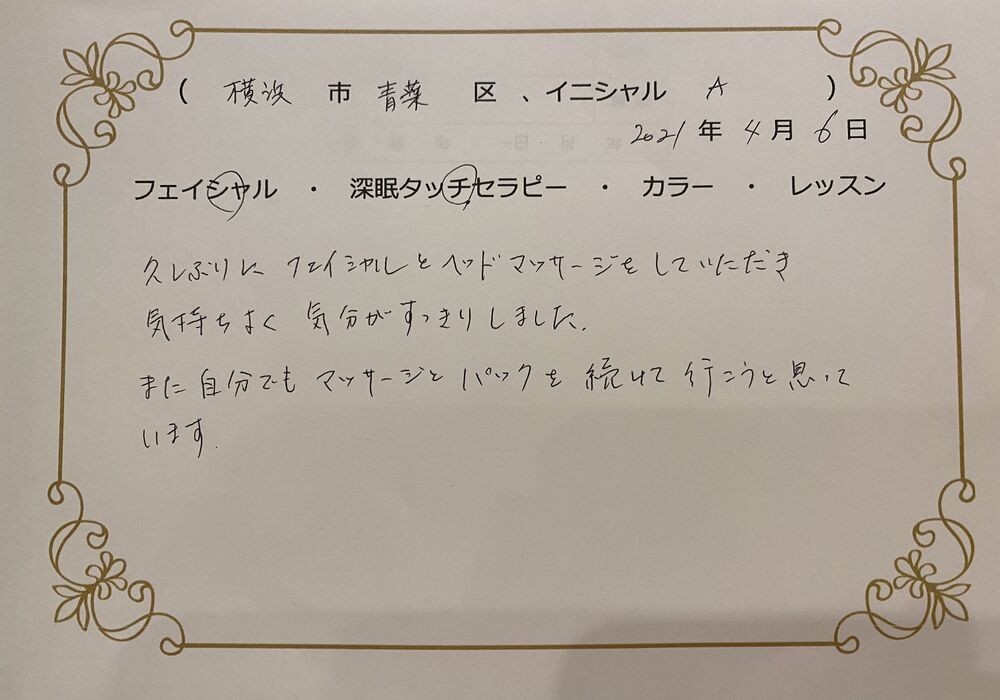 ( 横浜 市 青葉 区 、イニシャル A )
2021 年 4 月 6 日
フェイシャル ・ 深眠タッチセラピー ・ カラー ・ レッスン
久しぶりに フェイシャルとヘッドマッサージをしていただき
気持ちよく 気分がすっきりしました。
また自分でも マッサージと パックを 続けて行こうと思って
います.